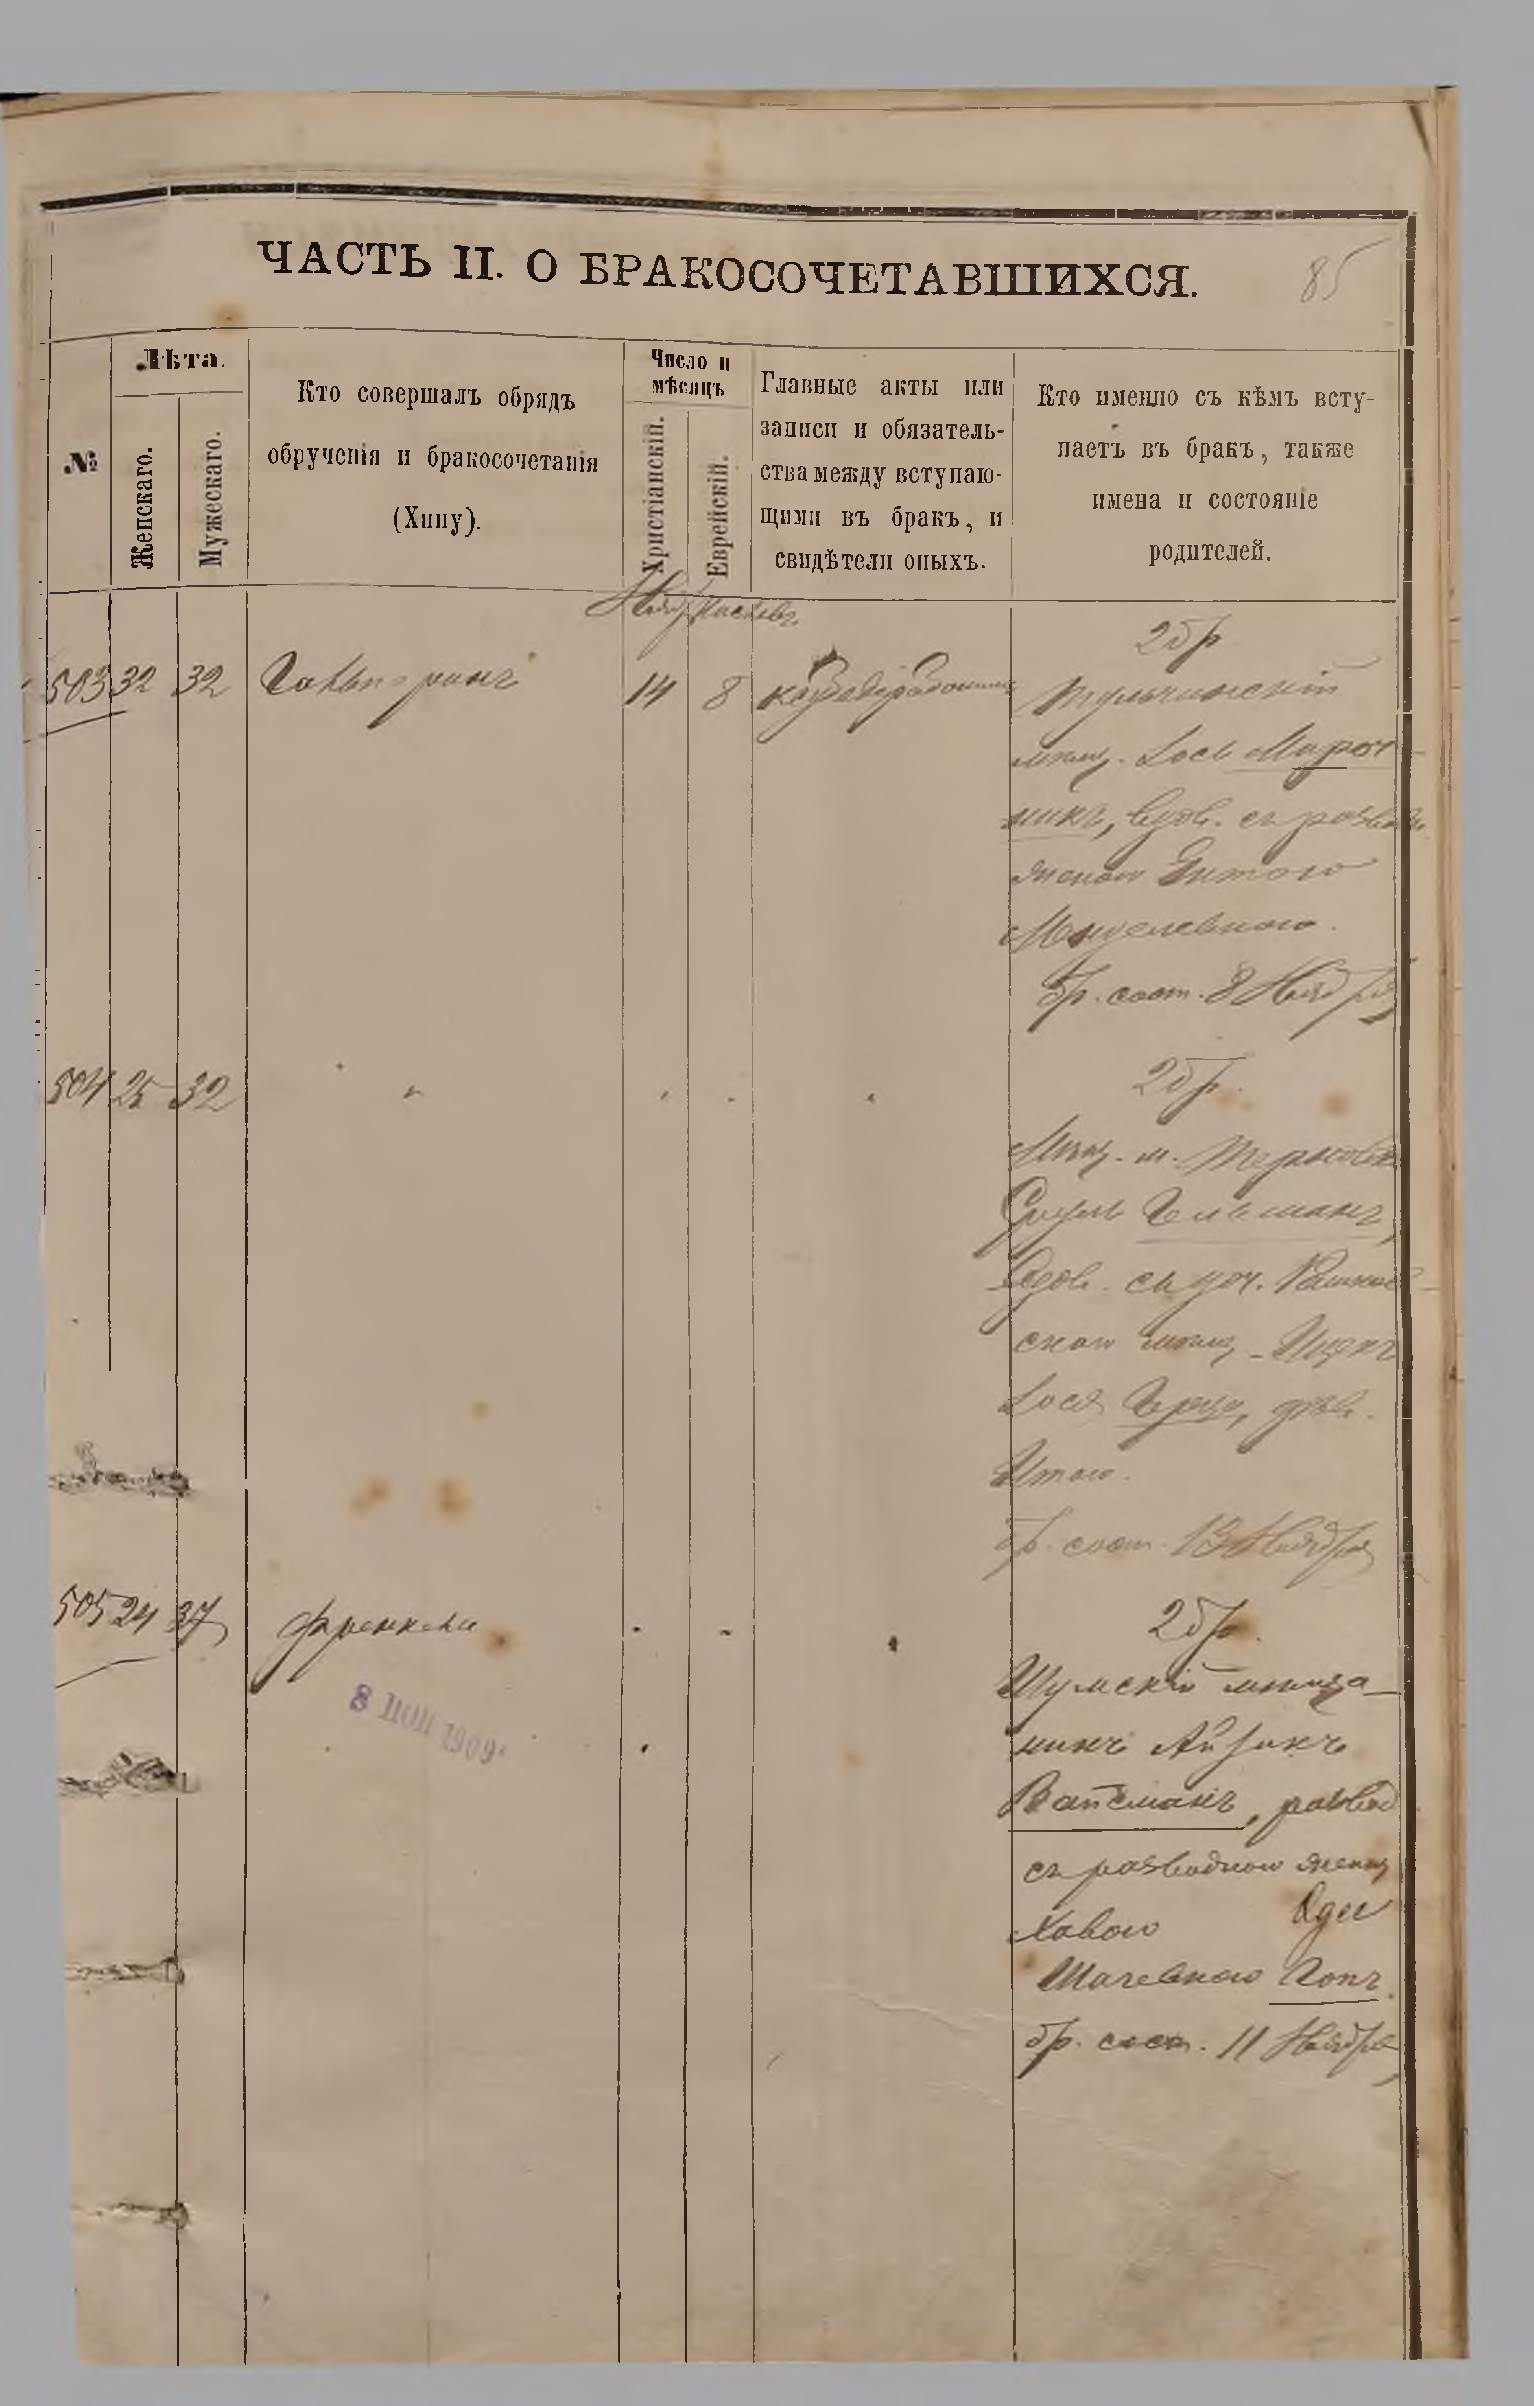 ЧАСТЬ II. О БРАКОСОЧЕТАВШИХСЯ.
85
№
Лѣта.
Женскаго.
Мужескаго.
Кто совершалъ обрядъ
обрученія и бракосочетанія
(Хипу).
Число и
мѣсяцъ
Христіанскій.
Еврейскій.
Главные акты или
записи и обязатель-
ства между вступаю-
щими въ бракъ, и
свидѣтели оныхъ.
Кто именно съ кѣмъ всту-
паетъ въ бракъ, также
имена и состояніе
родителей.
Нояб. Кислевъ
503 32 32 14 8
2 бр.
Тульчинскій
мѣщ. Іось Мироч-
никъ, вдов. съ развед.
женою
Менделевною.
бр. сост. 8 Ноября
504 25 32 " " " "
2 бр.
Мѣщ. м. Терновки
Сруль Гельманъ,
вдов. съ доч.
скаго мѣщ. Ицекъ
Іося Герцъ, дѣв.
бр. сост. 13 Ноября
505 24 37 Френкель " " "
8 ІЮН 1909
2 бр.
Шумскій мѣща-
нинъ Айзикъ
Вайсманъ, развед
съ разводною женщ
Хавою Одес
Гопъ.
бр. сост. 11 Ноября